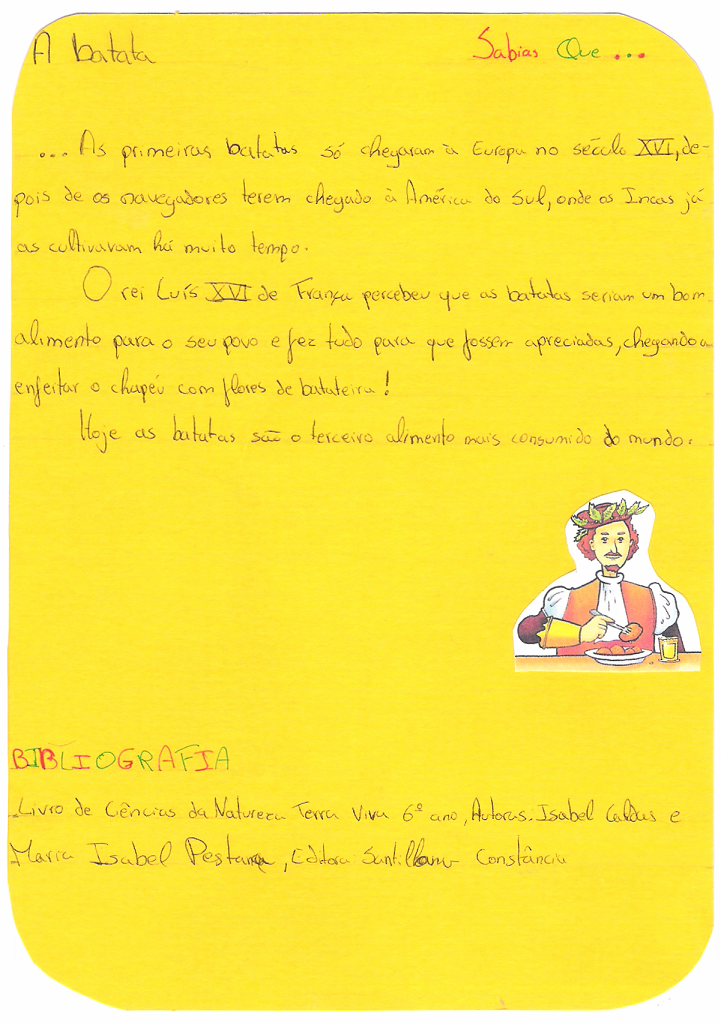 A batata
Sabias Que...
... As primeiras batatas só chegaram à Europa no século XVI, de-
pois de os navegadores terem chegado à América do Sul, onde os Incas já
as cultivavam há muito tempo.
O rei Luís XVI de França percebeu que as batatas seriam um bom
alimento para o seu povo e fez tudo para que fossem apreciadas, chegando a
enfeitar o chapéu com flores de batateira!
Hoje as batatas são o terceiro alimento mais consumido do mundo.
BIBLIOGRAFIA
.Livro de Ciências da Natureza Terra Viva 6º ano, Autoras. Isabel Caldas e
Maria Isabel Pestana, Editora Santillana Constância